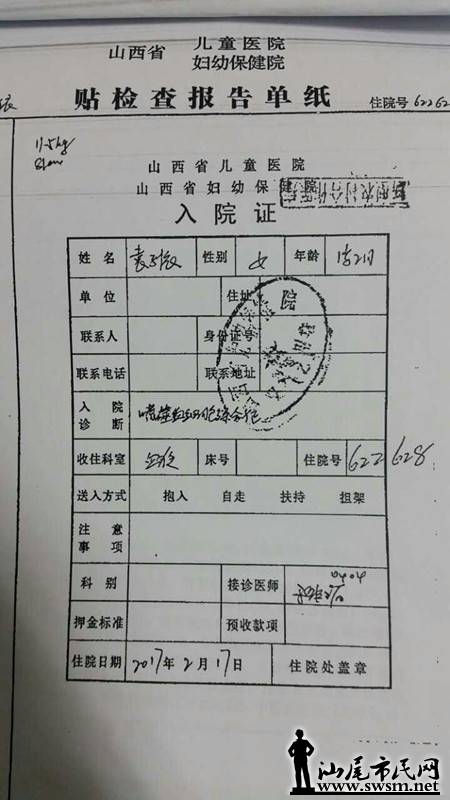 山西省 儿童医院
妇幼保健院
贴检查报告单纸
住院号 62262
11.5kg
山西省儿童医院
山西省妇幼保健院
入院证
姓名 性别 女 年龄
单位 住址
联系人 身份证号
联系电话 联系地址
入院诊断 嗜血细胞综合征
收住科室 床号 住院号 622628
送入方式 抱入 自走 扶持 担架
注意事项
科别 接诊医师 0404
押金标准 预收款项
住院日期 2017年2月17日 住院处盖章
汕尾市民网
www.swsm.net